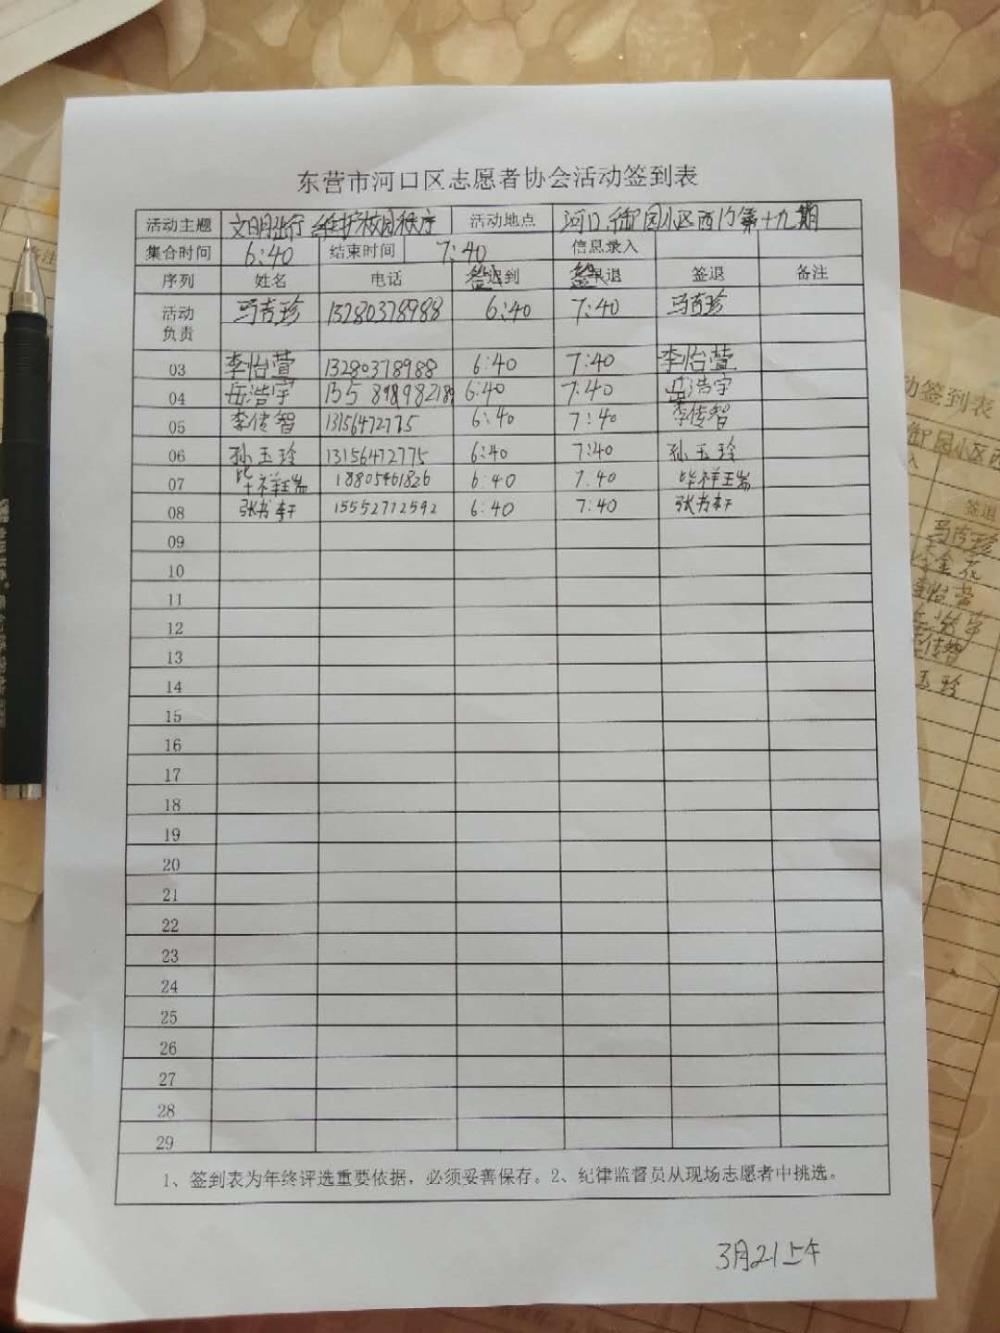 东营市河口区志愿者协会活动签到表
活动主题 文明出行 维护校园秩序 活动地点 河口御园小区西门第十九期
集合时间 6:40 结束时间 7:40 信息录入
序列 姓名 电话 签到 签退 备注
活动负责 马秀珍 13280378988 6:40 7:40 马秀珍
03 李怡萱 13280378988 6:40 7:40 李怡萱
04 岳浩宇 6:40 7:40 岳浩宇
05 李传智 13156472775 6:40 7:40 李传智
06 孙玉玲 13156472775 6:40 7:40 孙玉玲
07 18805461826 6:40 7.40
08 张书轩 15552712592 6:40 7:40 张书轩
09
10
11
12
13
14
15
16
17
18
19
20
21
22
23
24
25
26
27
28
29
1、签到表为年终评选重要依据，必须妥善保存。2、纪律监督员从现场志愿者中挑选。
3月21上午
动签到表
御园小区西
签退